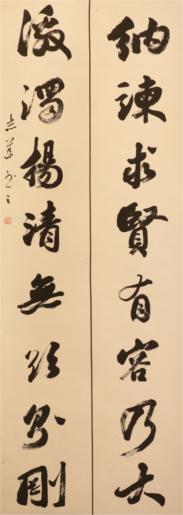 納諫求賢有容乃大
激濁揚清無欲則剛